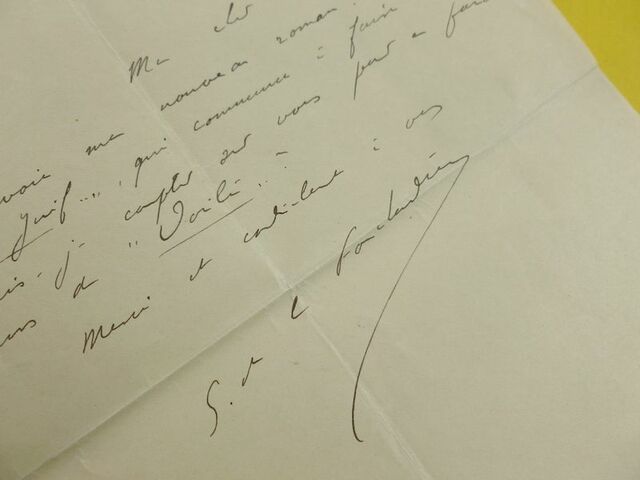 Mon cher
voie mon nouveau roman
Juif", qui commence à faire
is-je compter sur vous pour en
de "Voilà" ?
Merci et cordialement à vous
G. de La Fouchardière